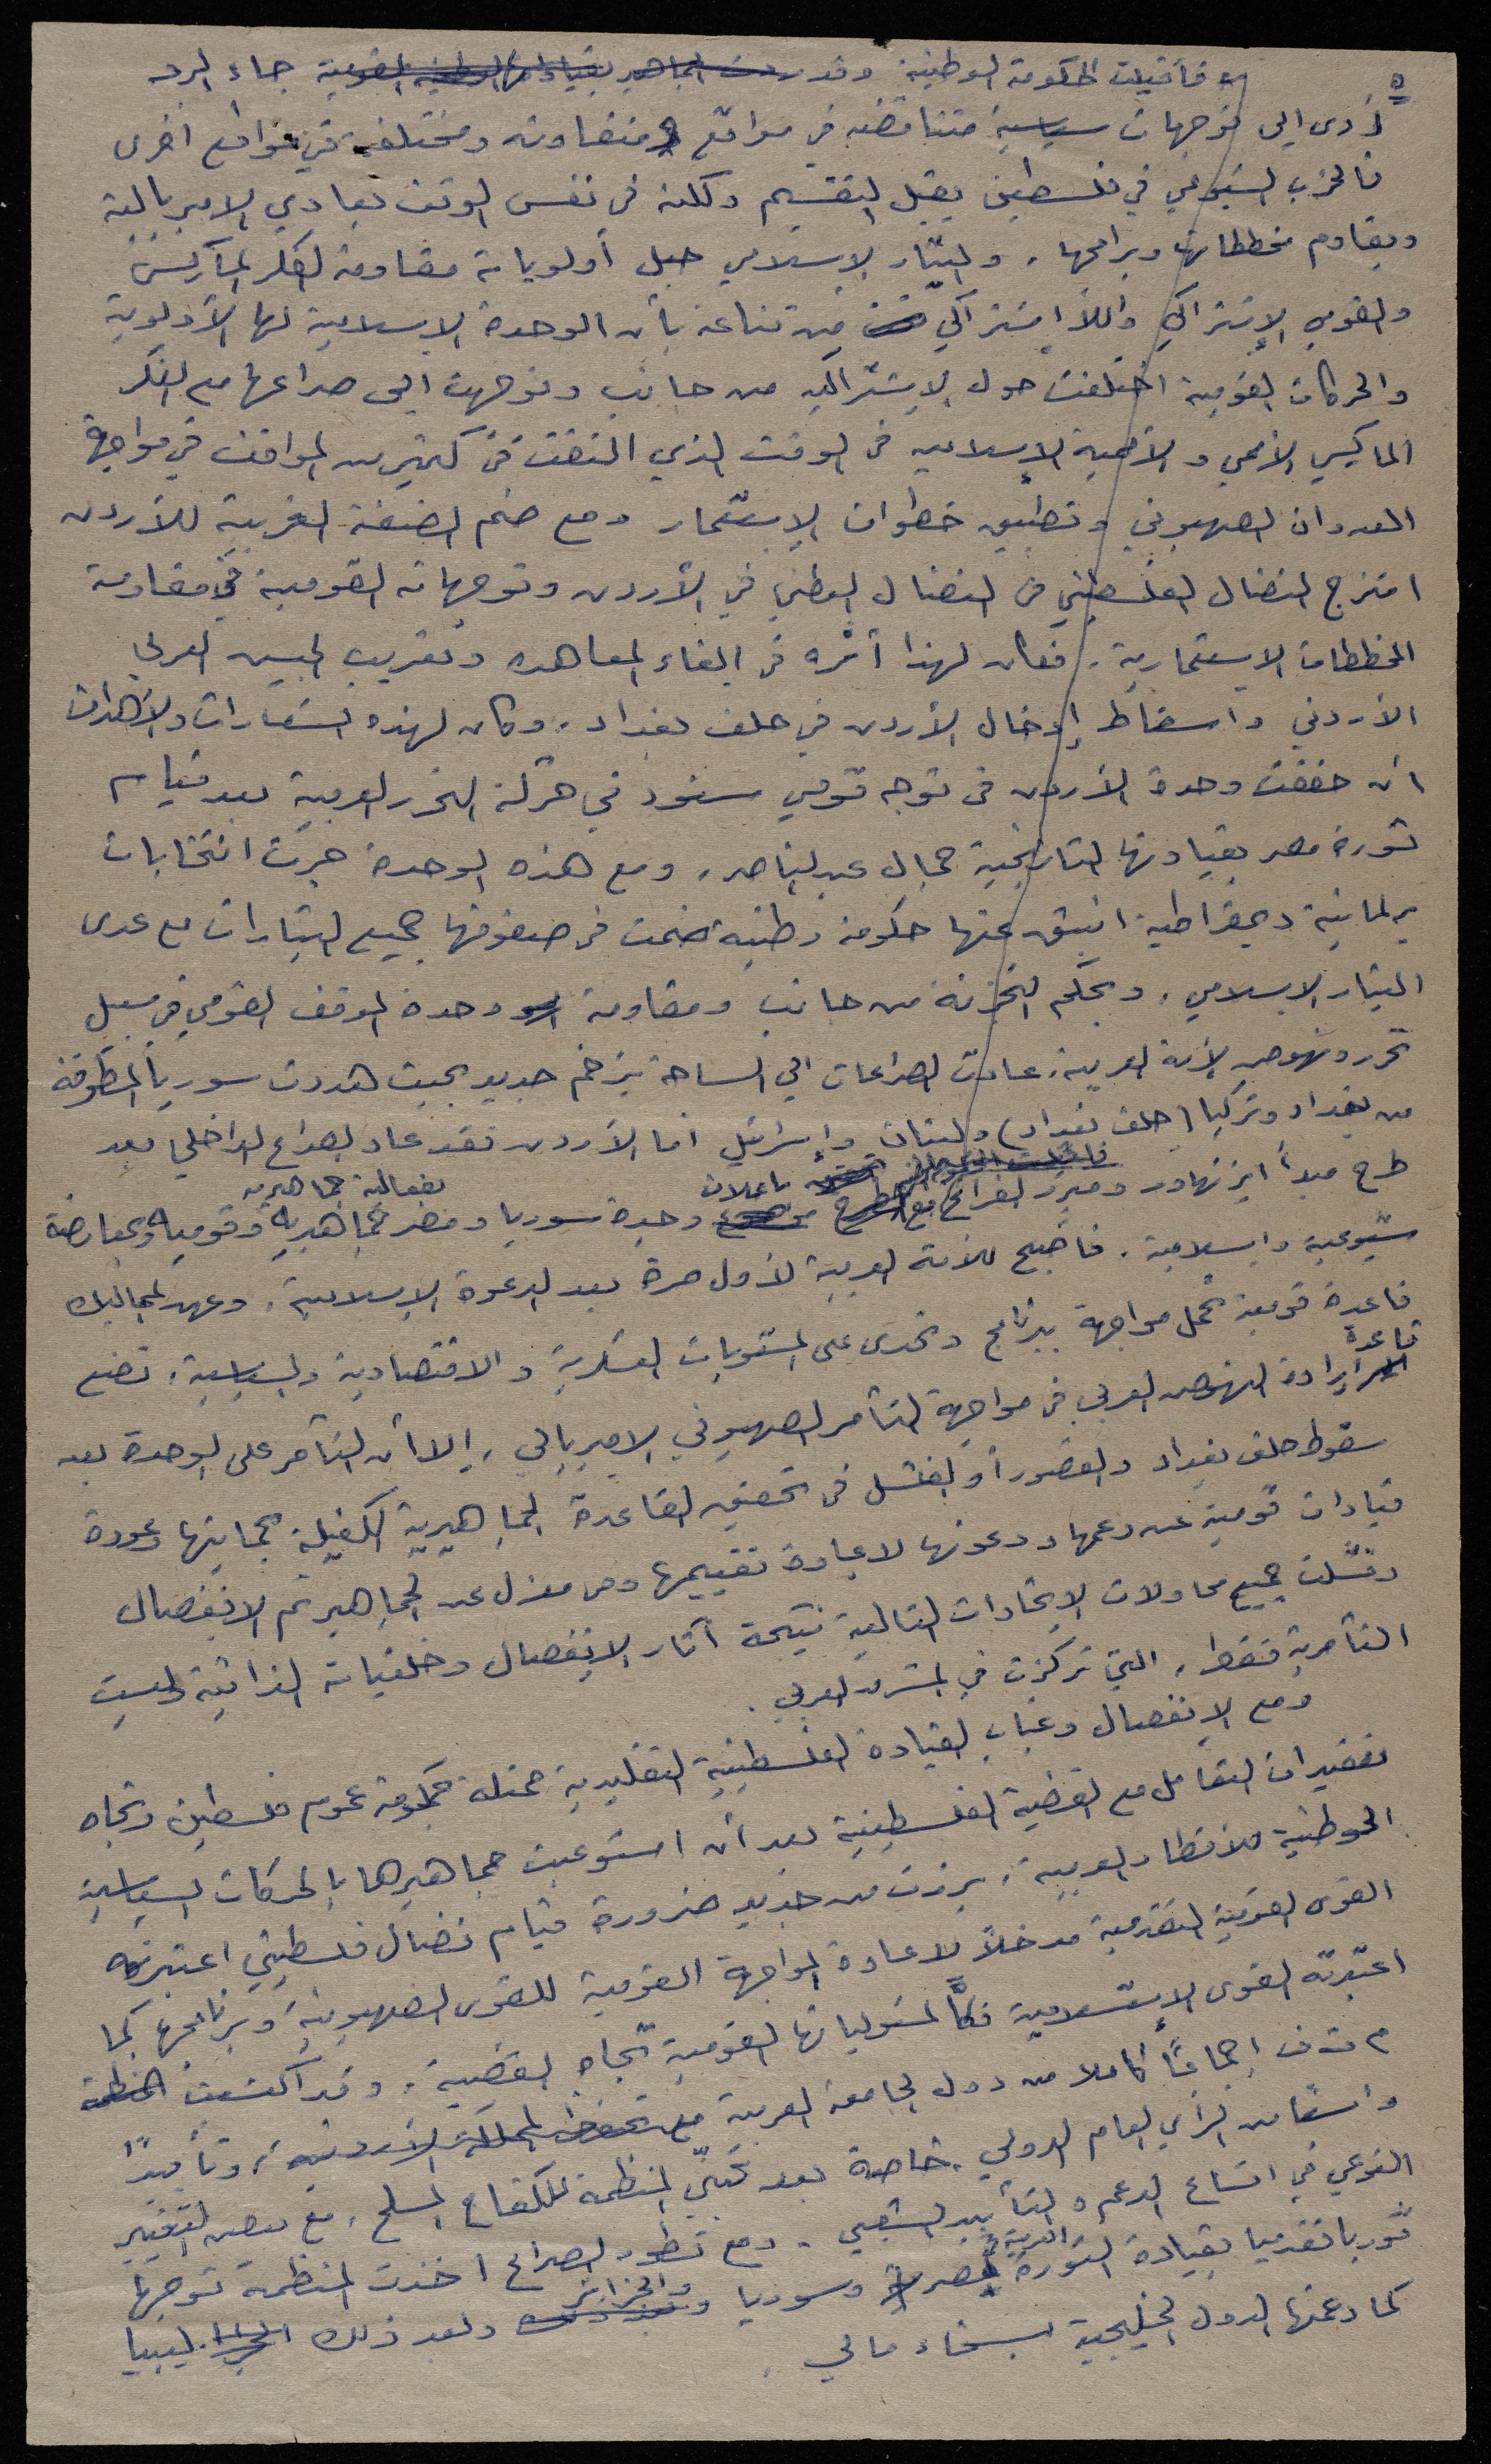 ٥ فأقيلت الحكومة الوطنية وقد ردت الجماهير بقياداتها الوطنية القومية جاء الرد
أدى إلى توجهات سياسية متناقضه في مواقع متفاوته ومختلفة في مواقع أخرى
فالحزب الشيوعي في فلسطين يقبل التقسيم ولكنه في نفس الوقت يعادي الامبريالية
ويقاوم مخططاتها وبرامجها، والتيّار الإسلامي جعل أولوياته مقاومة الفكر الماركسي
والقومي الإشتراكي واللاإشتراكي من قناعة بأن الوحدة الإسلامية لها الأولوية
والحركات القومية اختلفت حول الإشتراكيه من جانب وتوجهت الى صراعها مع الفكر
الماركسي الأممي والأممية الإسلاميه في الوقت الذي التقت في كثير من المواقف في مواجهة
العدوان الصهيوني وتطبيق خطوات الإستعمار ومع ضم الضفة الغربية للأردن
امتزج النضال الفلسطيني في النضال الوطني في الأردن وتوجهاته القومية في مقاومة
المخططات الاستعمارية. فكان لهذا أثره في الغاء المعاهده وتعريب الجيش العربي
الأردني واسقاط إدخال الأردن في حلف بغداد، وكان لهذه الشعارات والأهداف
أن حققت وحدة الأردن في توجه قومي سنود في حركة التحرر العربية بعد قيام
ثورة مصر بقيادتها التاريخية جمال عبد الناصر، ومع هذه الوحدة جرت انتخابات
برلمانية ديمقراطية انبثق عنها حكومة وطنية ضمت في صفوفها جميع التيارات مع عدى
التيار الإسلامي، وبحكم التجزئة من جانب ومقاومة وحدة الموقف القومي في سبيل
تحرر ونهوض الأمة العربية، عادت الصراعات الى الساحة بزخم جديد بحيث هددت سوريا المطوقة
من بغداد وتركيا (حلف بغداد) ولبنان وإسرائيل أما الأردن فقد عاد الصراع الداخلي بعد
طرح مبدأ ايزنهاور ومبدأ الفراغ مع باعلان وحدة سوريا ومصر بفعالية جماهيرية جماهيرية وقومية وبمعارضة
شيوعية وإسلامية. فأصبح للأمة العربية لأول مرة بعد الدعوة الإسلامية، وعهد المماليك
قاعدة قومية تحمل مواجهة ببرنامج وتحدى على المستويات العسكرية والاقتصادية والسياسية، تضع
قاعدة لإرادة النهوض العربي في مواجهة التآمر الصهيوني الامبريالي، إلا أن التآمر على الوحدة بعد
سقوط حلف بغداد والقصور أو الفشل في تحقيق القاعدة الجماهيرية الكفيلة بحمايتها وعودة
قيادات قومية عن دعمها ودعوتها لاعادة تقييمها وفي معزل عن الجماهير تم الإنفصال
وفشلت جميع محاولات الإتحادات التالية نتيجة آثار الإنفصال وخلفياته الذاتية ليست
التآمرية فقط، التي تركزت في المشرق العربي.
ومع الإنفصال وغياب القيادة الفلسطينية التقليدية ممثلة بحكومة عموم فلسطين وتجاه
تغييرات التعامل مع القضية الفلسطينية بعد أن استوعبت جماهيرها بالحركات السياسية
الوطنية للأقطار العربية، برزت من جديد ضرورة قيام نضال فلسطيني اعتبرته
القوى القومية التقدمية مدخلاً لاعادة المواجهة القومية للقوى الصهيونية وبرنامجها كما
اعتبرته القوى الإسلامية فكاً لمسؤلياتها القومية تجاه القضية، وقد اكتسبت المنظمة
م ت ف إجماعاً كاملا من دول الجامعة العربية مع تحفظ المملكة الأردنية، وتأييداً
واسعاً من الرأي العام الدولي، خاصة بعد تبني المنظمة للكفاح المسلح، مع بعض التغيير
النوعي في اتساع الدعم والتأييد الشعبي. ومع تطور الصراع اخذت المنظمة توجهاً
ثوريا تقدميا بقيادة الثورة العربية لمصر وسوريا والجزائر وبعد ذلك ليبيا
كما دعمتها الدول الخليجية بسخاء مالي.